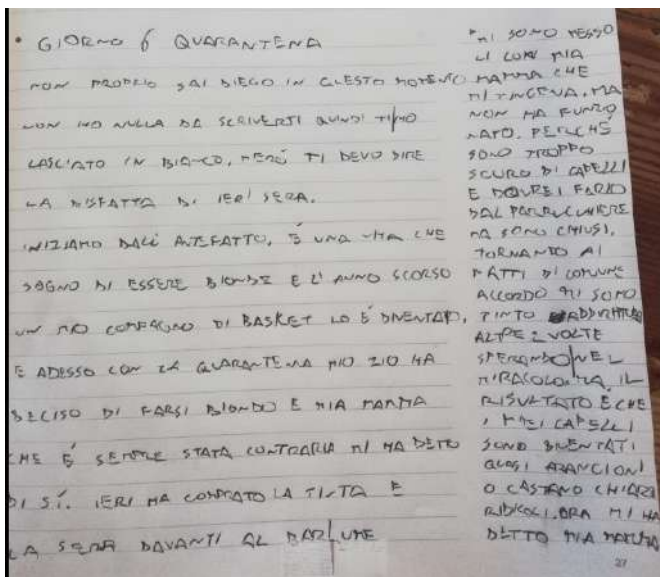 • GIORNO 6 QUARANTENA
NON PROPRIO SAI DIEGO IN QUESTO MOMENTO
NON HO NULLA DA SCRIVERTI QUINDI TI HO
LASCIATO IN BIANCO, PERÒ TI DEVO DIRE
LA DISFATTA DI IERI SERA.
INIZIAMO DALL'ANTEFATTO, È UNA VITA CHE
SOGNO DI ESSERE BIONDO E L'ANNO SCORSO
UN MIO COMPAGNO DI BASKET LO È DIVENTATO,
E ADESSO CON LA QUARANTENA MIO ZIO HA
DECISO DI FARSI BIONDO E MIA MAMMA
CHE È SEMPRE STATA CONTRARIA MI HA DETTO
DI SÌ. IERI HA COMPRATO LA TINTA E
LA SERA DAVANTI AL
MI SONO MESSO
LÌ CON MIA
MAMMA CHE
MI TINGEVA. MA
NON HA FUNZIO
NATO. PERCHÉ
SONO TROPPO
SCURO DI CAPELLI
E DOVREI FARLO
DAL PARRUCCHIERE
MA SONO CHIUSI.
TORNANDO AI
FATTI DI COMUNE
ACCORDO MI SONO
TINTO ADDIRITTURA
ALTRE 2 VOLTE
SPERANDO NEL
MIRACOLO. MA IL
RISULTATO È CHE
I MIEI CAPELLI
SONO DIVENTATI
QUASI ARANCIONI
O CASTANO CHIARI
RIDICOLI. ORA MI HA
DETTO MIA MAMMA
27